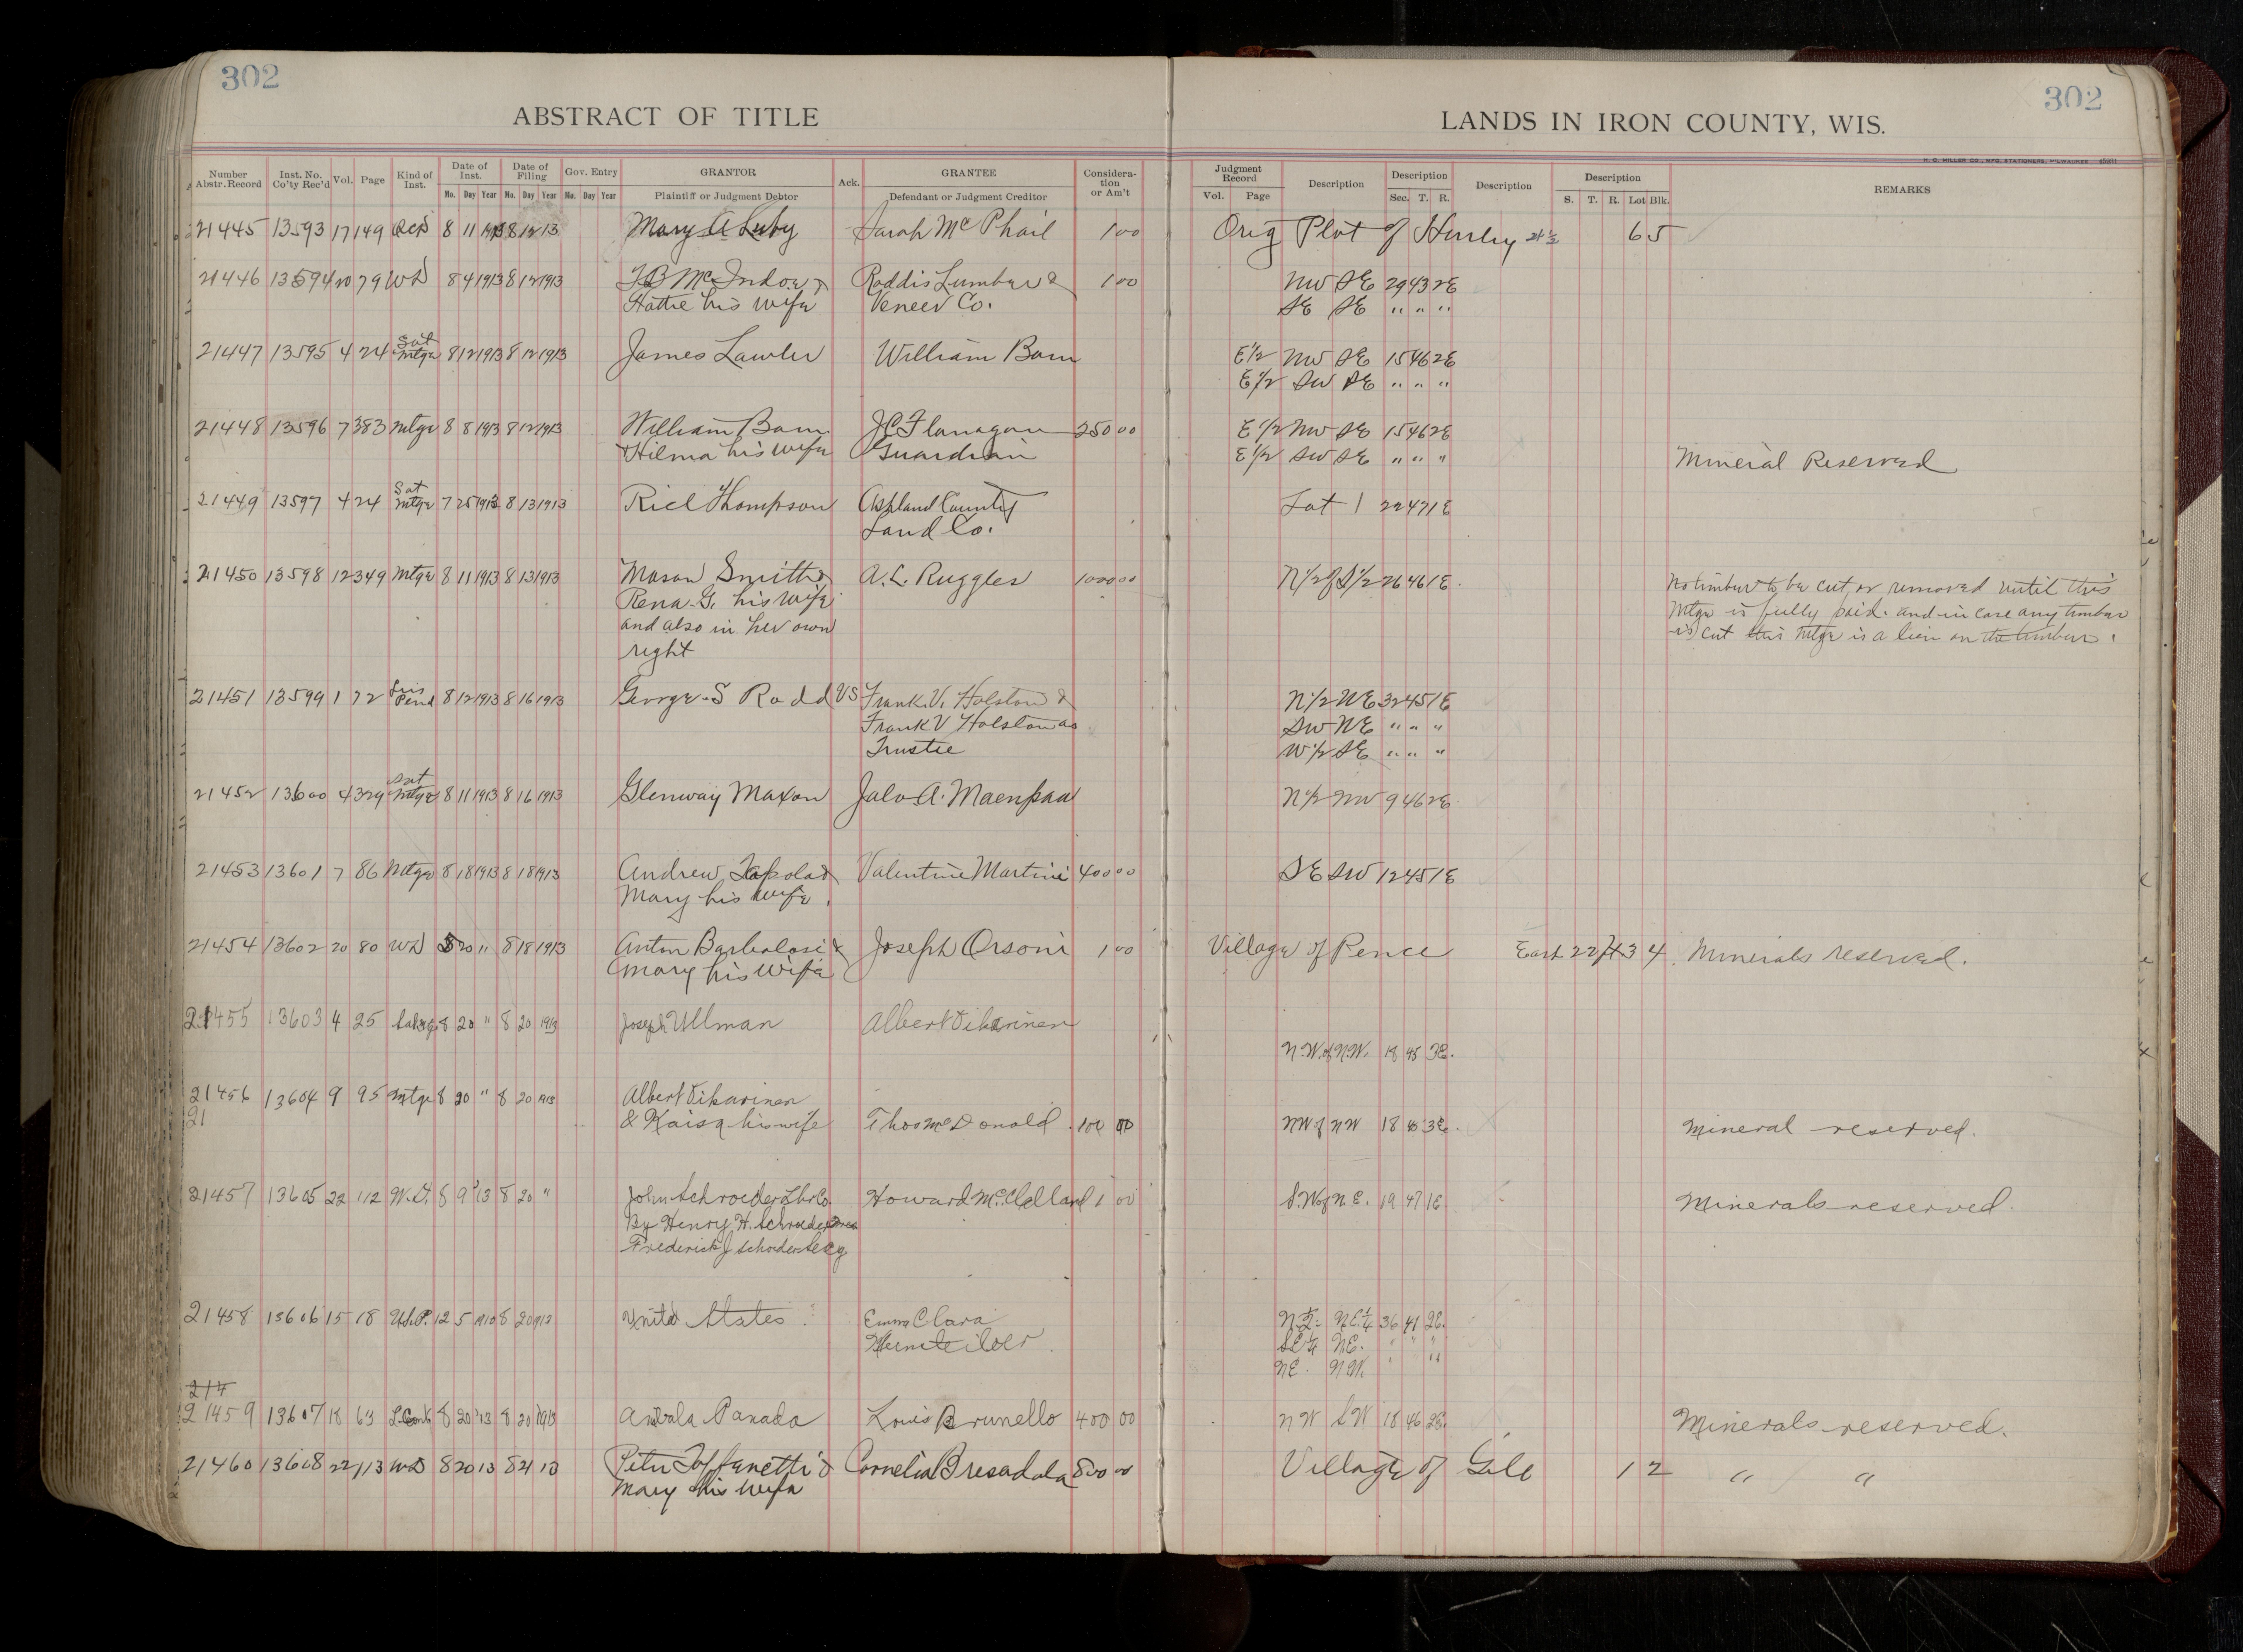 302
302
ABSTRACT OF TITLE
LANDS IN IRON COUNTY, WIS.
H. C. MILLER CO., MFG. STATIONERS, MILWAUKEE
Number Abstr. Record Inst. No. Co'ty Rec'd Vol. Page Kind of Inst. Date of Inst. Mo. Day Year Date of Filing Mo. Day Year Gov. Entry Mo. Day Year GRANTOR Plaintiff or Judgment Debtor Ack. GRANTEE Defendant or Judgment Creditor Considera-tion or Am't Judgment Record Vol. Page Description Description Sec. T. R. Description Description S. T. R. Lot Blk. REMARKS
21445 13593 17 149 QCD 8 11 1913 8 12 13 Mary A Luby Sarah McPhail 1 00 Orig Plat of Hurley 6 5
21446 13594 20 79 WD 8 4 1913 8 12 1913 McIndoe & Roddis Lumber & 1 00 NW SE 29 43 2E
Hattie his wife Veneer Co. SE SE " " "
Sat
21447 13595 4 24 Mtge 8 12 1913 8 12 1913 James Lawler William Bam E1/2 NW SE 15 46 2E
E1/2 SW SE " " "
21448 13596 7 383 Mtge 8 8 1913 8 12 1913 William Bam J C Flanagan 250 00 E1/2 NW SE 15 46 2E
& Hilma his wife Guardian E1/2 SW SE " " " Mineral Reserved
Sat
21449 13597 4 24 Mtge 7 25 1913 8 13 1913 Riel Thompson Ashland County Lot 1 22 47 1E
Land Co.
21450 13598 12 349 Mtge 8 11 1913 8 13 1913 Mason Smith & A. L. Ruggles 1000 00 N1/2 of S1/2 26 46 1E No timber to be cut or removed until this
Rena G. his wife Mtge is fully paid. and in case any timber
and also in her own is cut this Mtge is a lien on the timber.
right
Lis
21451 13599 1 72 Pend 8 12 1913 8 16 1913 George S Rodd VS Frank V. Holston & N1/2 NE 32 45 1E
Frank V Holston as SW NE " " "
Trustee W1/2 SE " " "
Sat
21452 13600 4 329 Mtge 8 11 1913 8 16 1913 Glenway Maxon Jalo A. Maenpaa N1/2 NW 9 46 2E
21453 13601 7 86 Mtge 8 18 1913 8 18 1913 Andrew & Valentine Martini 400 00 SE SW 12 45 1E
Mary his wife.
21454 13602 20 80 WD 20 " 8 18 1913 Anton & Joseph Orsoni 1 00 Village of Pence East 22 3 4 Minerals reserved.
Mary his wife
21455 13603 4 25 8 20 " 8 20 1913 Joseph Ullman Albert Vikarinen
N.W. of N.W. 18 45 3E.
21456 13604 9 95 Mtge 8 20 " 8 20 1913 Albert Vikarinen
21 & Kaisa his wife Thos McDonald 100 00 NW of NW 18 45 3E. Mineral reserved.
21457 13605 22 112 W.D. 8 9 '13 8 20 " John Schroeder Lbr Co. Howard McClelland 1 00 S.W. of N.E. 19 47 1E Minerals reserved.
By Henry H. Schroeder Pres
Frederick J Schroeder Secy
21458 13606 15 18 U.S.P. 12 5 1910 8 20 1913 United States Emma Clara N 1/2 NE 1/4 36 41 2E.
SE 1/4 NE. " " "
NE. NW " "
214
21459 13607 18 63 L.Cont 8 20 '13 8 20 1913 Anibala Panada Louis Brunello 400 00 NW SW 18 46 2E. Minerals reserved.
21460 13608 22 113 WD 8 20 13 8 21 13 Peter Toffenetti & Cornelia Bresadola 800 00 Village of Gile 1 2 " "
Mary his wife